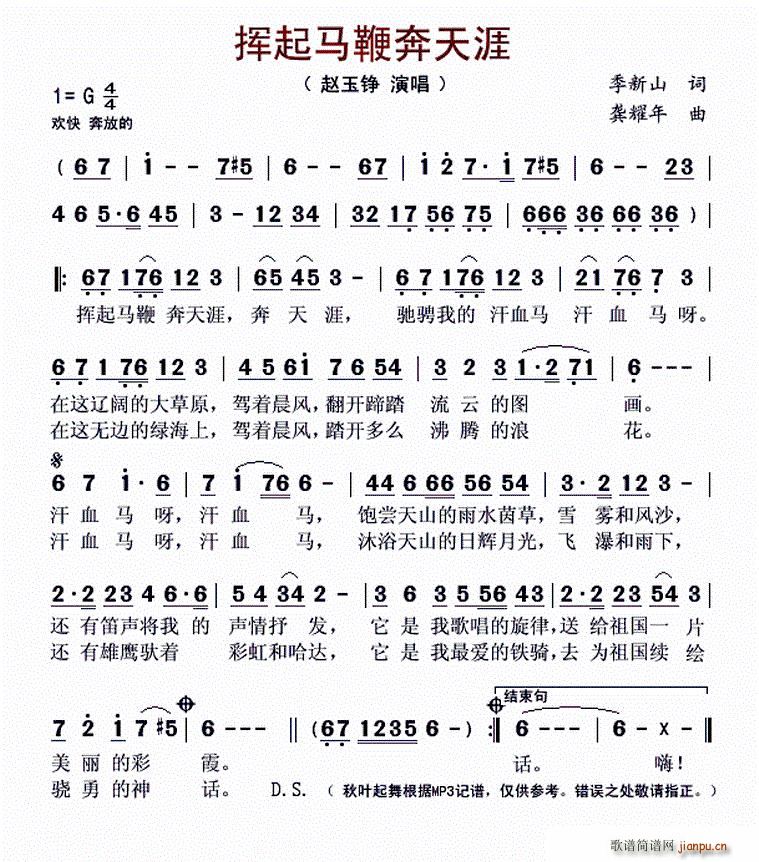 挥起马鞭奔天涯
（ 赵玉铮 演唱 ）
季新山 词
1= G 4/4
龚耀年 曲
欢快 奔放的
( 6 7 | 1 - - 7#5 | 6 - - 67 | 1 2 7· 1 7#5 | 6 - - 23 |
4 6 5·6 45 | 3 - 12 34 | 32 17 56 75 | 666 36 66 36 ) |
‖: 67 176 12 3 | 65 45 3 - | 67 176 12 3 | 21 76 7 3 |
挥起马鞭 奔天涯，奔 天 涯， 驰骋我的 汗血马 汗 血 马 呀。
6 7 1 76 12 3 | 4 5 61 76 54 | 3 2 3 1·2 71 | 6 - - - |
在这辽阔的大草原，驾着晨风，翻开蹄踏 流 云 的 图 画。
在这无边的绿海上，驾着晨风，踏开多么 沸 腾 的 浪 花。
6 7 1· 6 | 7 1 76 6 - | 44 6 66 56 54 | 3· 2 12 3 - |
汗 血 马 呀，汗 血 马， 饱尝天山的雨水茵草，雪 雾和风沙，
汗 血 马 呀，汗 血 马， 沐浴天山的日辉月光，飞 瀑和雨下，
2·2 23 4 6·6 | 5 4 34 2 - | 3 6 3 5 56 43 | 2·2 23 54 3 |
还 有笛声将我 的 声情抒 发， 它 是 我歌唱的旋律，送 给祖国一 片
还 有雄鹰驮着 彩虹和哈达， 它 是 我最爱的铁骑，去 为祖国续 绘
结束句
7 2 1 7 #5 | 6 - - - ‖ ( 67 1235 6 - ) :‖ 6 - - - | 6 - x - ‖
美 丽 的 彩 霞。 话。 嗨！
骁 勇 的 神 话。 D.S. （ 秋叶起舞根据MP3记谱，仅供参考。错误之处敬请指正。）
歌谱简谱网 jianpu.cn